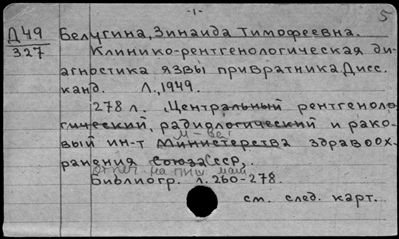 -1-
5
Д49
327
Белугина, Зинаида Тимофеевна.
Клинико-рентгенологическая ди-
агностика язвы привратника. Дисс.
канд. Л., 1949.
278 л. Центральный рентгеноло-
гический, радиологический и рако-
вый ин-т Министерства здравоох-
м-ва
ранения Союза ССР,
отпеч. на пиш. маш.
Библиогр. л. 260-278.
см. след. карт.